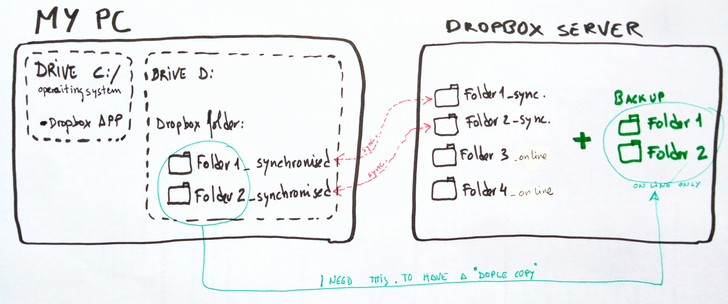 MY PC
DRIVE C:/
operaiting system
•Dropbox APP
DRIVE D:
Dropbox folder:
Folder 1_synchronised
Folder 2_synchronised
sync.
sync.
DROPBOX SERVER
Folder 1_sync.
Folder 2_sync.
Folder 3_online
Folder 4_online
+
BACKUP
Folder 1
Folder 2
ON LINE ONLY
I NEED THIS. TO HAVE A "DOPLE COPY"